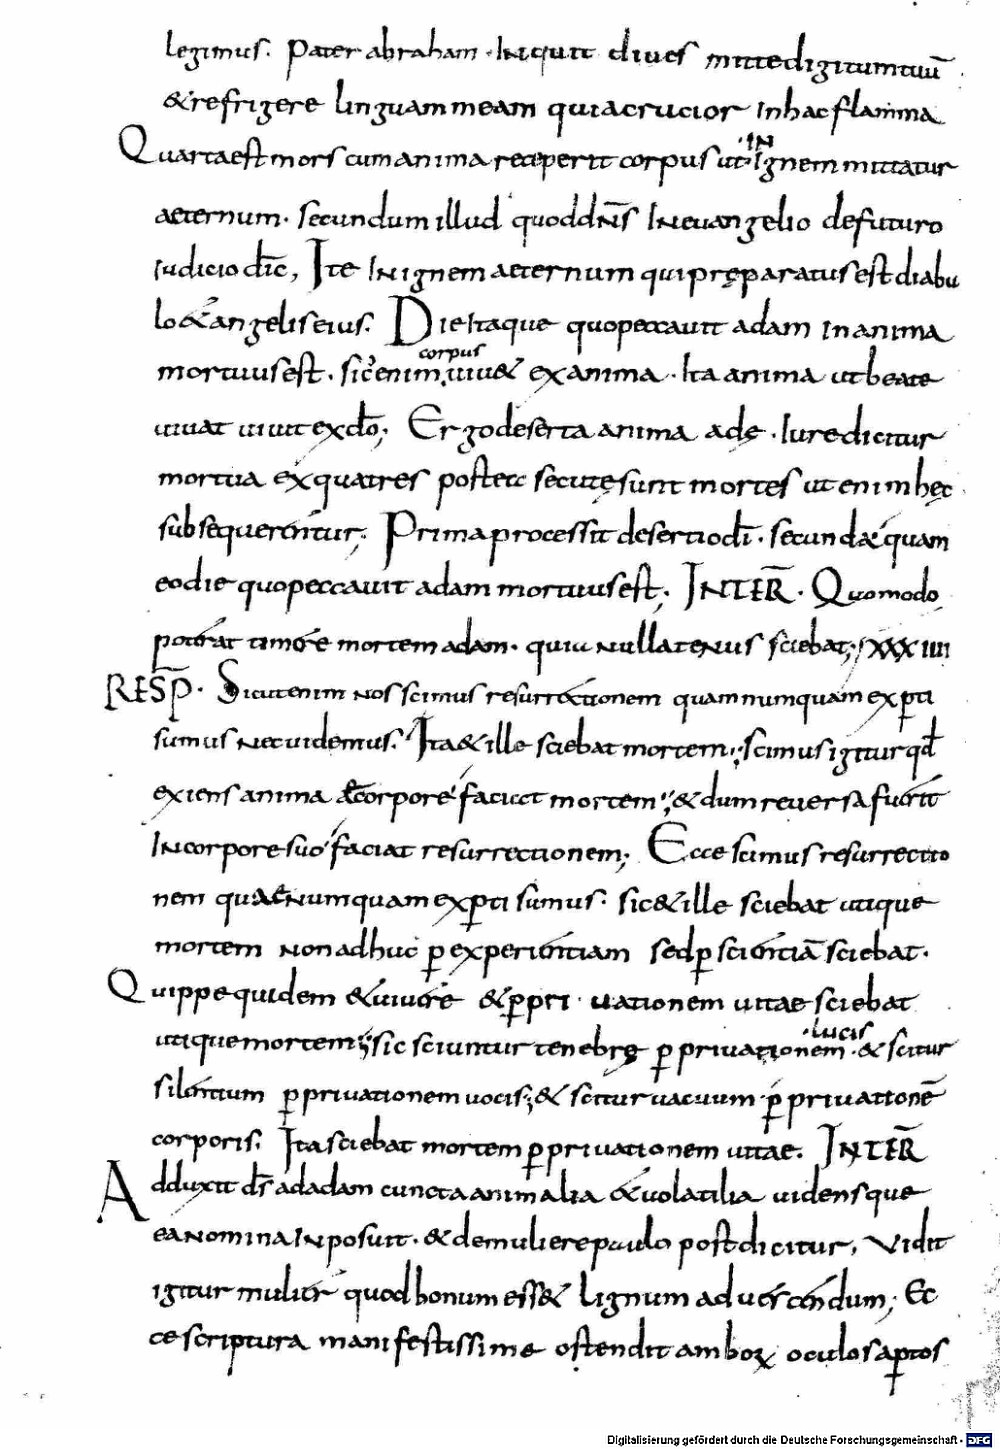 legimus. Pater abraham · Inquit diues mittedigitumtuū
&refrigere linguam meam quiacrucior inhac flamma
Quartaest mors cum anima receperit corpus ut ·IN ignem mittatur
aeternum · secundum illud quod dn̄s Ineuangelio defuturo
iudicio dic̄, Ite In ignem aeternum quipręparatus est diabu
lo &angelis eius. Die itaque quopeccauit adam in anima
mortuus est · sic enim corpus uiu& exanima · Ita anima ut beate
uiuat uiuit exdō; Ergo deserta anima adę · Iure dicitur
mortua ex qua tres postea secutę sunt mortes ut enim hęc
subsequerentur; Prima processit desertio dī · secunda & quam
eo die quo peccauit adam mortuus est; INTER̄ · Quomodo
poterat timere mortem adam · quia nullatenus sciebat; XXXIIII
RESP̄ · Sicut enim nos scimus resurrectionem quam numquam experti
sumus nec uidemus. Ita & ille sciebat mortem; scimus igitur qd̄
exiens anima de corpore faciat mortem; & dum reuersa fuerit
In corpore suo faciat resurrectionem; Ecce scimus resurrectio
nem quam numquam experti sumus · sic & ille sciebat utique
mortem non adhuc p̱ experientiam sed p̱ scientiā sciebat ·
Quippe quidem & uiuere & p̱ pri uationem uitae sciebat
utique mortem; sic sciuntur tenebrę p̱ priuationem · lucis · & scitur
silentium p̱ priuationem uocis; & scitur uacuum · p̱ priuationē
corporis. Ita sciebat mortem p̱ priuationem uitae. INTER̄
Adduxit ds̄ ad adam cuncta animalia & uolatilia uidensque
ea nomina Inposuit · & de muliere paulo post dicitur, Vidit
igitur mulier quod bonum ess& lignum ad uescendum; Ec
ce scriptura manifestissime ostendit amboꝝ oculos ap̱tos
Digitalisierung gefördert durch die Deutsche Forschungsgemeinschaft - DFG